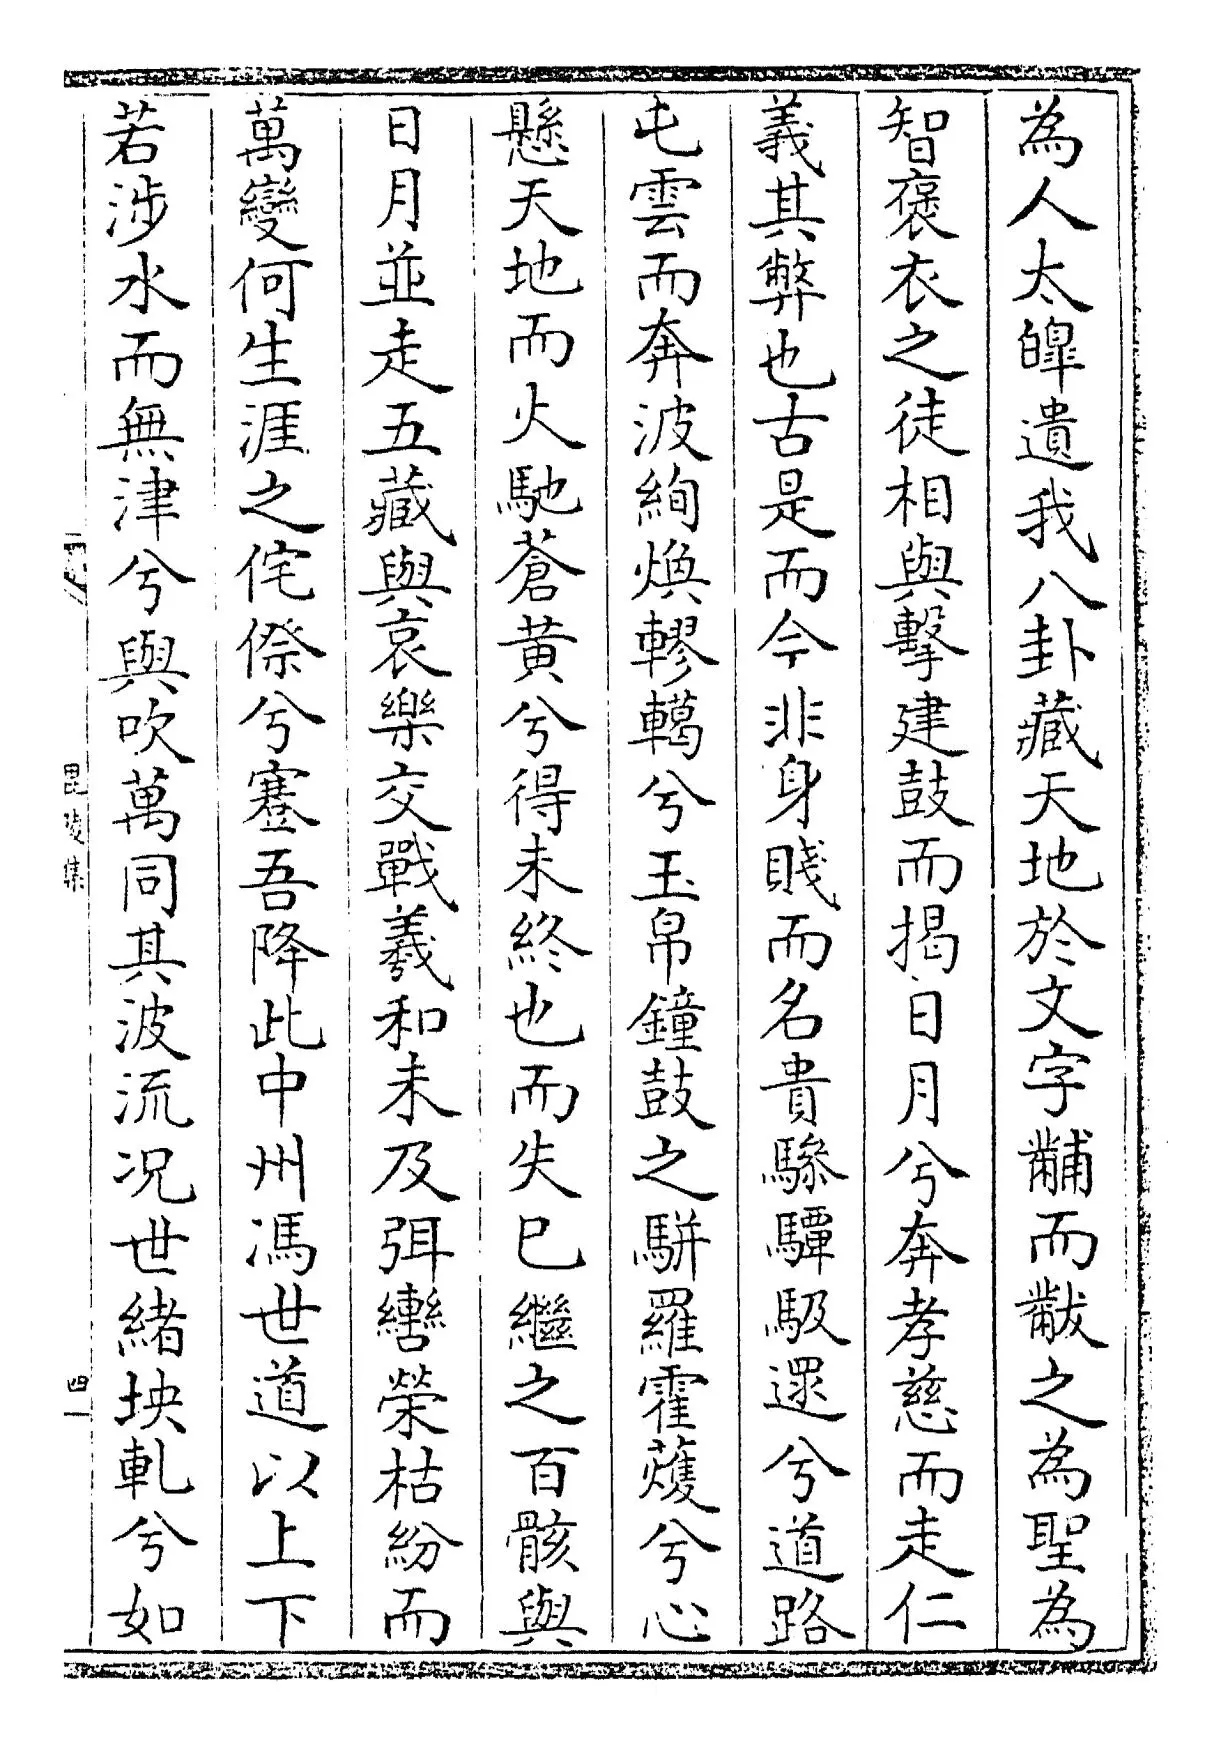 為人太皥遺我八卦藏天地於文字黼而黻之為聖為
智褒衣之徒相與擊建鼓而揭日月兮奔孝慈而走仁
義其弊也古是而今非身賤而名貴驂驔馺遝兮道路
屯雲而奔波絢煥轇轕兮玉帛鐘鼓之駢羅霍䕶兮心
懸天地而火馳蒼黄兮得未終也而失已繼之百骸與
日月並走五藏與哀樂交戰羲和未及弭轡榮枯紛而
萬變何生涯之侘傺兮蹇吾降此中州馮世道以上下
若涉水而無津兮與吹萬同其波流况世緒坱軋兮如
毘陵集
四一